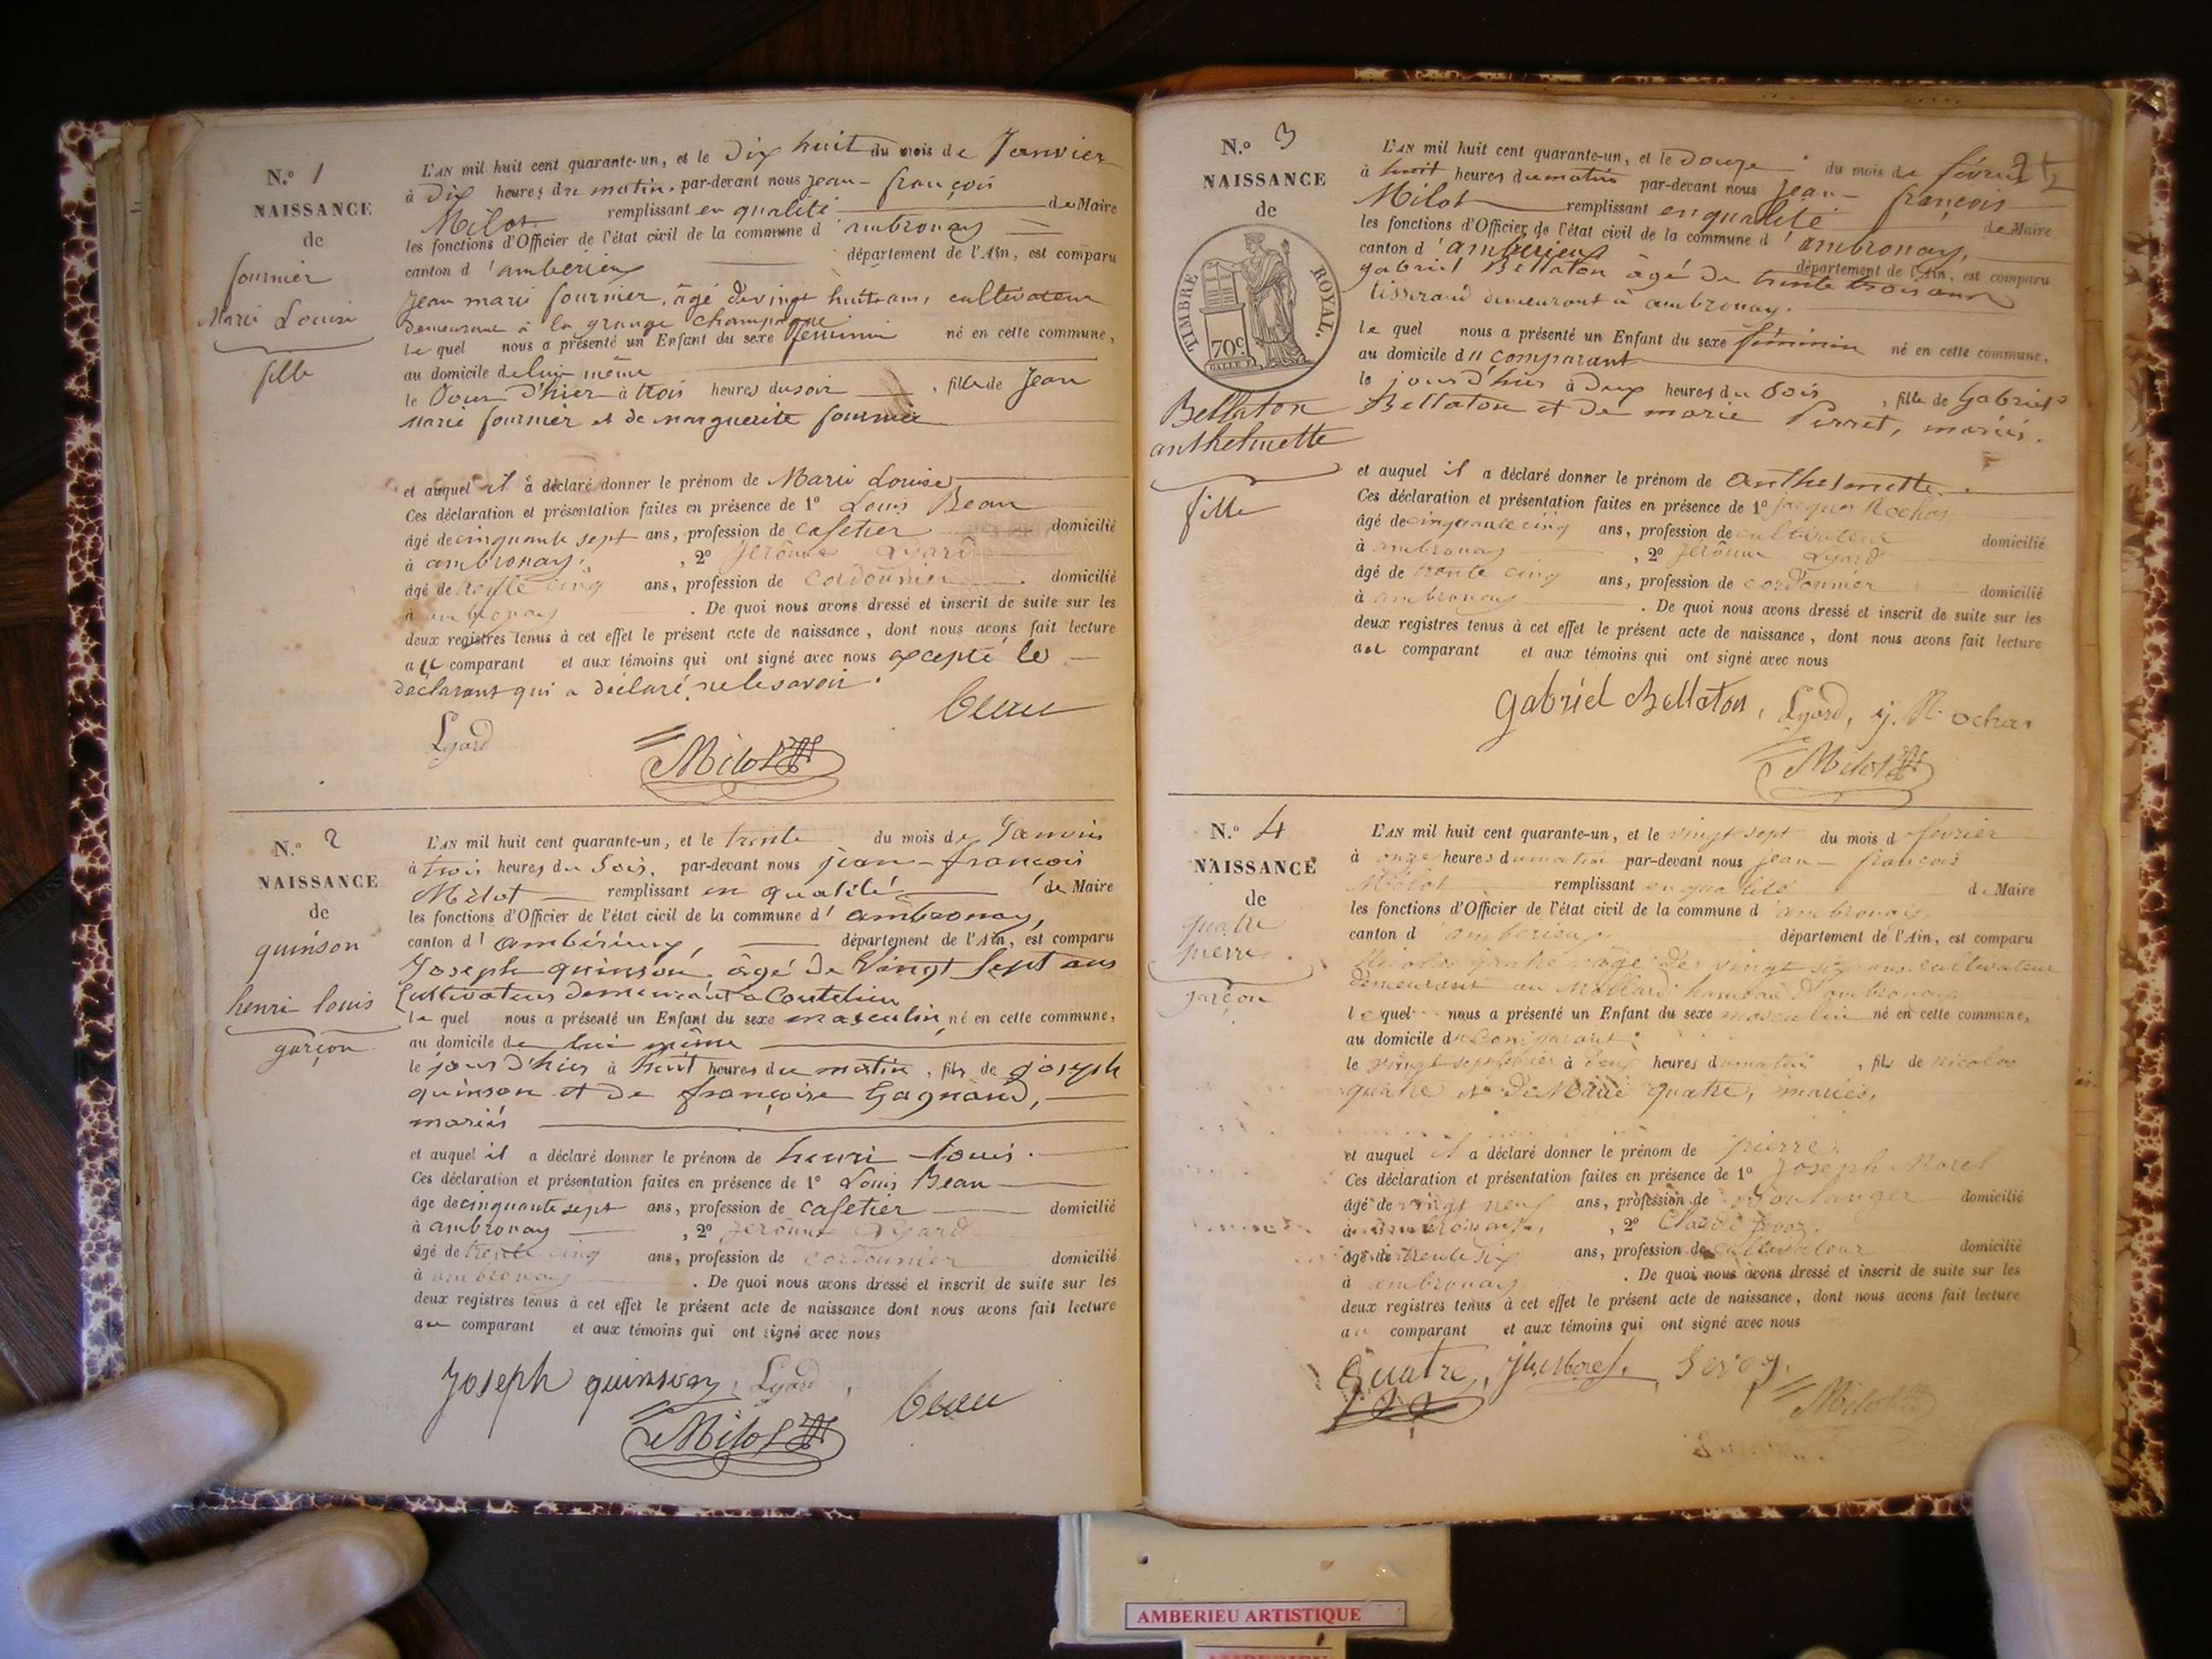 N.° 1
NAISSANCE
de
fournier
Marie Louise
fille
L'AN mil huit cent quarante-un, et le Dix huit du mois de Janvier
à Dix heures du matin, par-devant nous jean-françois
Milot remplissant en qualité de Maire
les fonctions d'Officier de l'état civil de la commune d'ambronay
canton d'amberieux département de l'Ain, est comparu
Jean marie fournier, âgé de vingt huit ans, cultivateur
demeurant à la grange champagne
le quel nous a présenté un Enfant du sexe feminin né en cette commune,
au domicile de lui même
le Jour d'hier à trois heures du soir, fille de Jean
marie fournier et de marguerite fournier
et auquel il a déclaré donner le prénom de Marie Louise
Ces déclaration et présentation faites en présence de 1° Louis Beau
âgé de cinquante sept ans, profession de cafetier domicilié
à ambronay, 2° Jerôme Lyard
âgé de trente cinq ans, profession de cordonnier domicilié
à ambronay. De quoi nous avons dressé et inscrit de suite sur les
deux registres tenus à cet effet le présent acte de naissance, dont nous avons fait lecture
au comparant et aux témoins qui ont signé avec nous excepté le
déclarant qui a déclaré ne le savoir.
Lyard beau
Milot
N.° 2
NAISSANCE
de
quinson
henri louis
garçon
L'AN mil huit cent quarante-un, et le trente du mois de Janvier
à trois heures du Soir, par-devant nous jean-françois
Milot remplissant en qualité de Maire
les fonctions d'Officier de l'état civil de la commune d'ambronay,
canton d'ambérieux, département de l'Ain, est comparu
Joseph quinson âgé de vingt sept ans
Cultivateur demeurant a Coutelieu
le quel nous a présenté un Enfant du sexe masculin né en cette commune,
au domicile de lui même
le jour d'hier à huit heures du matin, fils de joseph
quinson et de françoise Gagnard,
mariés
et auquel il a déclaré donner le prénom de henri louis.
Ces déclaration et présentation faites en présence de 1° Louis Beau
âgé de cinquante sept ans, profession de cafetier domicilié
à ambronay, 2° Jerôme Lyard
âgé de trente cinq ans, profession de cordonnier domicilié
à ambronay. De quoi nous avons dressé et inscrit de suite sur les
deux registres tenus à cet effet le présent acte de naissance dont nous avons fait lecture
au comparant et aux témoins qui ont signé avec nous
Joseph quinson, Lyard, beau
Milot
N.° 3
NAISSANCE
de
TIMBRE ROYAL.
70c.
Bellaton
anthelmette
fille
L'AN mil huit cent quarante-un, et le Douze du mois de février
à huit heures du matin par-devant nous Jean-françois
Milot remplissant en qualité de Maire
les fonctions d'Officier de l'état civil de la commune d'ambronay,
canton d'amberieux département de l'Ain, est comparu
gabriel Bellaton âgé de trente trois ans
tisserand demeurant à ambronay.
le quel nous a présenté un Enfant du sexe féminin né en cette commune.
au domicile du comparant
le jour d'hier à Deux heures du Soir, fille de Gabriel
Bellaton et de marie Perret, mariés.
et auquel il a déclaré donner le prénom de Anthelmette.
Ces déclaration et présentation faites en présence de 1° jacques Rochas
âgé de cinquante cinq ans, profession de cultivateur domicilié
à ambronay, 2° Jerôme Lyard
âgé de trente cinq ans, profession de cordonnier domicilié
à ambronay. De quoi nous avons dressé et inscrit de suite sur les
deux registres tenus à cet effet le présent acte de naissance, dont nous avons fait lecture
au comparant et aux témoins qui ont signé avec nous
Gabriel Bellaton, Lyard, j. Rochas
Milot
N.° 4
NAISSANCE
de
quatre
pierre.
garçon
L'AN mil huit cent quarante-un, et le vingt sept du mois d fevrier
à onze heures du matin par-devant nous jean-françois
Milot remplissant en qualité de Maire
les fonctions d'Officier de l'état civil de la commune d ambronay,
canton d amberieux département de l'Ain, est comparu
Nicolas quatre âgé de vingt six ans cultivateur
demeurant au Mollard hameau d'ambronay
le quel nous a présenté un Enfant du sexe masculin né en cette commune,
au domicile du comparant
le vingt sept à heures du matin, fils de nicolas
quatre et de Marie quatre, mariés,
et auquel il a déclaré donner le prénom de pierre.
Ces déclaration et présentation faites en présence de 1° Joseph Morel
âgé de vingt neuf ans, profession de Boulanger domicilié
à ambronay, 2° Claude
âgé de trente six ans, profession de cultivateur domicilié
à ambronay. De quoi nous avons dressé et inscrit de suite sur les
deux registres tenus à cet effet le présent acte de naissance, dont nous avons fait lecture
au comparant et aux témoins qui ont signé avec nous
Quatre, Morel,
Milot
AMBERIEU ARTISTIQUE